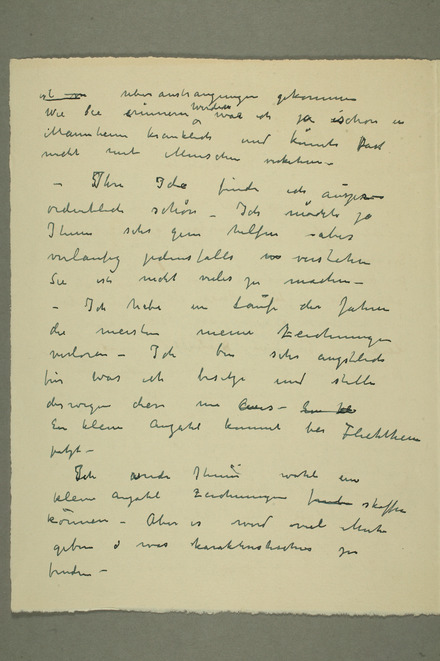 ueberanstrangungen gekommen
Wie Sie erinnern werden war ich ja schon in
Mannheim kranklich und konnte fast
nicht mit Menschen verkehren –
– Ihre Idee finde ich ausser
ordentlich schön – Ich möchte ja
Ihnen sehr gern helfen – aber
vorlaufig jedenfalls verstehen
Sie ist nicht vieles zu machen –
– Ich habe im Laufe der Jahren
die meisten meine Zeichnungen
verloren – Ich bin sehr angstlich
für was ich besitze und stelle
deswegen diese nie aus –
Ein kleine Anzahl kommt bei Flechtheim
Ich werde Ihnen wohl ein
kleine Anzahl Zeichnungen skaffen
können – Aber es wird viel Mühe
geben was karakteristisches zu
finden –